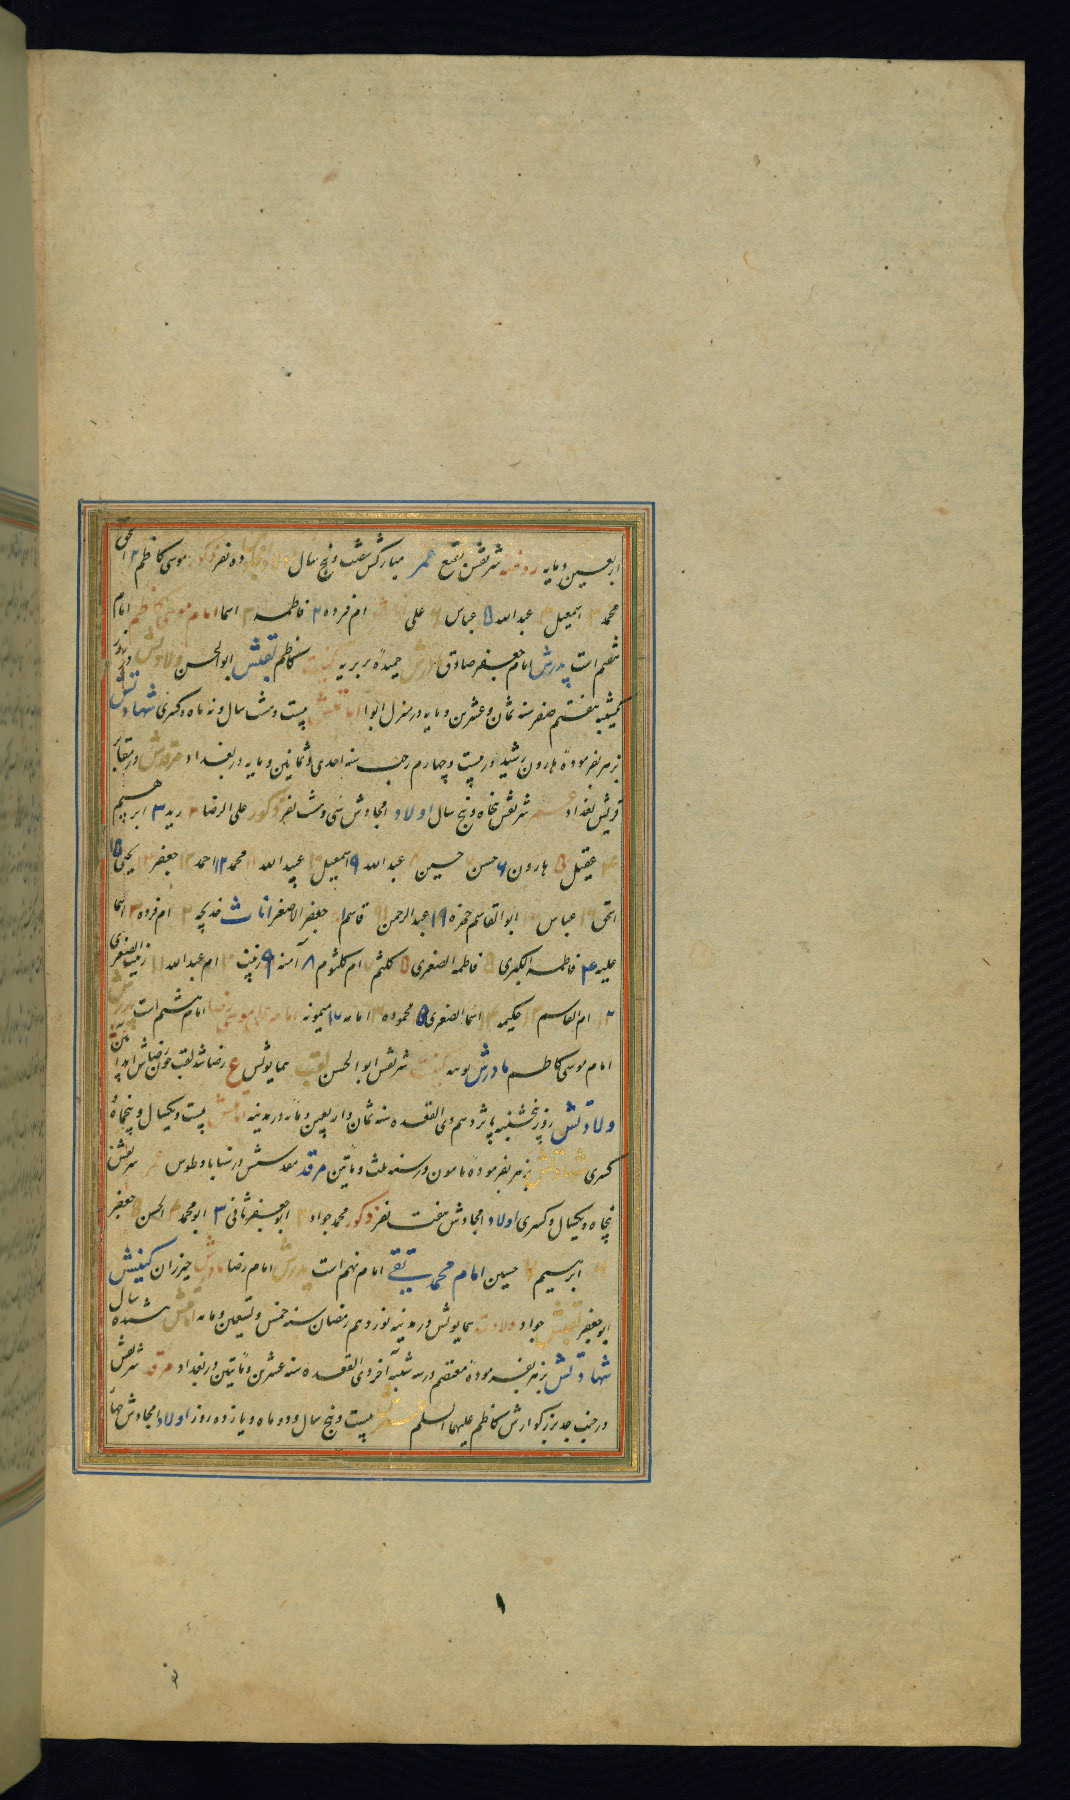 اربعین و مایه روضه شریفش بقیع عمر مبارکش شصت و پنج سال اولاد امجادش ده نفر ذکور موسی کاظم ۲ اسحق
محمد ۳ اسمعیل ۴ عبدالله ۵ عباس ۶ علی ام فروه ۲ فاطمه ۳ اسما امام موسی کاظم امام
هفتم است پدرش امام جعفر صادق مادرش حمیده بربریه کنیت کاظم لقبش ابوالحسن ولادتش روز
یکشنبه هفتم صفر سنه ثمان و عشرین و مایه در منزل ابوا امامتش بیست و هشت سال و نه ماه و کسری شهادتش
بزهر بفرموده هارون رشید در بیست و چهارم رجب سنه احدی و ثمانین و مایه در بغداد مرقدش در مقابر
قریش بغداد عمر شریفش پنجاه و پنج سال اولاد امجادش سی و هشت نفر ذکور علی الرضا ۲ زید ۳ ابرهیم
۴ عقیل ۵ هارون ۶ حسن ۷ حسین ۸ عبدالله ۹ اسمعیل ۱۰ عبیدالله ۱۱ محمد ۱۲ احمد ۱۳ جعفر ۱۴ یحیی ۱۵
اسحق ۱۶ عباس ۱۷ ابوالقاسم حمزه ۱۹ عبدالرحمن قاسم جعفر الاصغر اناث خدیجه ۲ ام فروه ۳ اسما
علیه ۴ فاطمه الکبری ۵ فاطمه الصغری ۵ کلثم ۷ ام کلثوم ۸ آمنه ۹ زینب ۱۰ ام عبدالله ۱۱ زینب الصغری
۱۲ ام القاسم ۱۳ حکیمه ۱۴ اسما الصغری ۱۵ محموده امامه ۱۷ میمونه امام علی موسی رضا امام هشتم است پدرش
امام موسی کاظم مادرش کنیت شریفش ابوالحسن لقب همایونش رضا
ولادتش روز پنجشنبه پانزدهم ذی القعده سنه ثمان و اربعین و مایه در مدینه امامتش بیست و یکسال و پنجماه و
کسری شهادتش بزهر بفرموده مامون در سنه ثلث و مأتین مرقد مقدسش در سناباد طوس عمر شریفش
پنجاه و یکسال و کسری اولاد امجادش هفت نفر ذکور محمد جواد ۲ ابو جعفر ثانی ۳ ابو محمد ۴ الحسن ۵ جعفر
۶ ابرهیم ۷ حسین امام محمد تقی امام نهم است پدرش امام رضا مادرش خیزران کنیتش
ابو جعفر لقبش جواد ولادت همایونش در مدینه نوزدهم رمضان سنه خمس و تسعین و مایه امامتش هفده سال
شهادتش بزهر بفرموده معتصم در سه شنبه آخر ذی القعده سنه عشرین و مأتین در بغداد مرقد شریفش
در جنب جد بزرگوارش کاظم علیهما السلم عمر بیست و پنج سال و دو ماه و یازده روز اولاد امجادش چهار